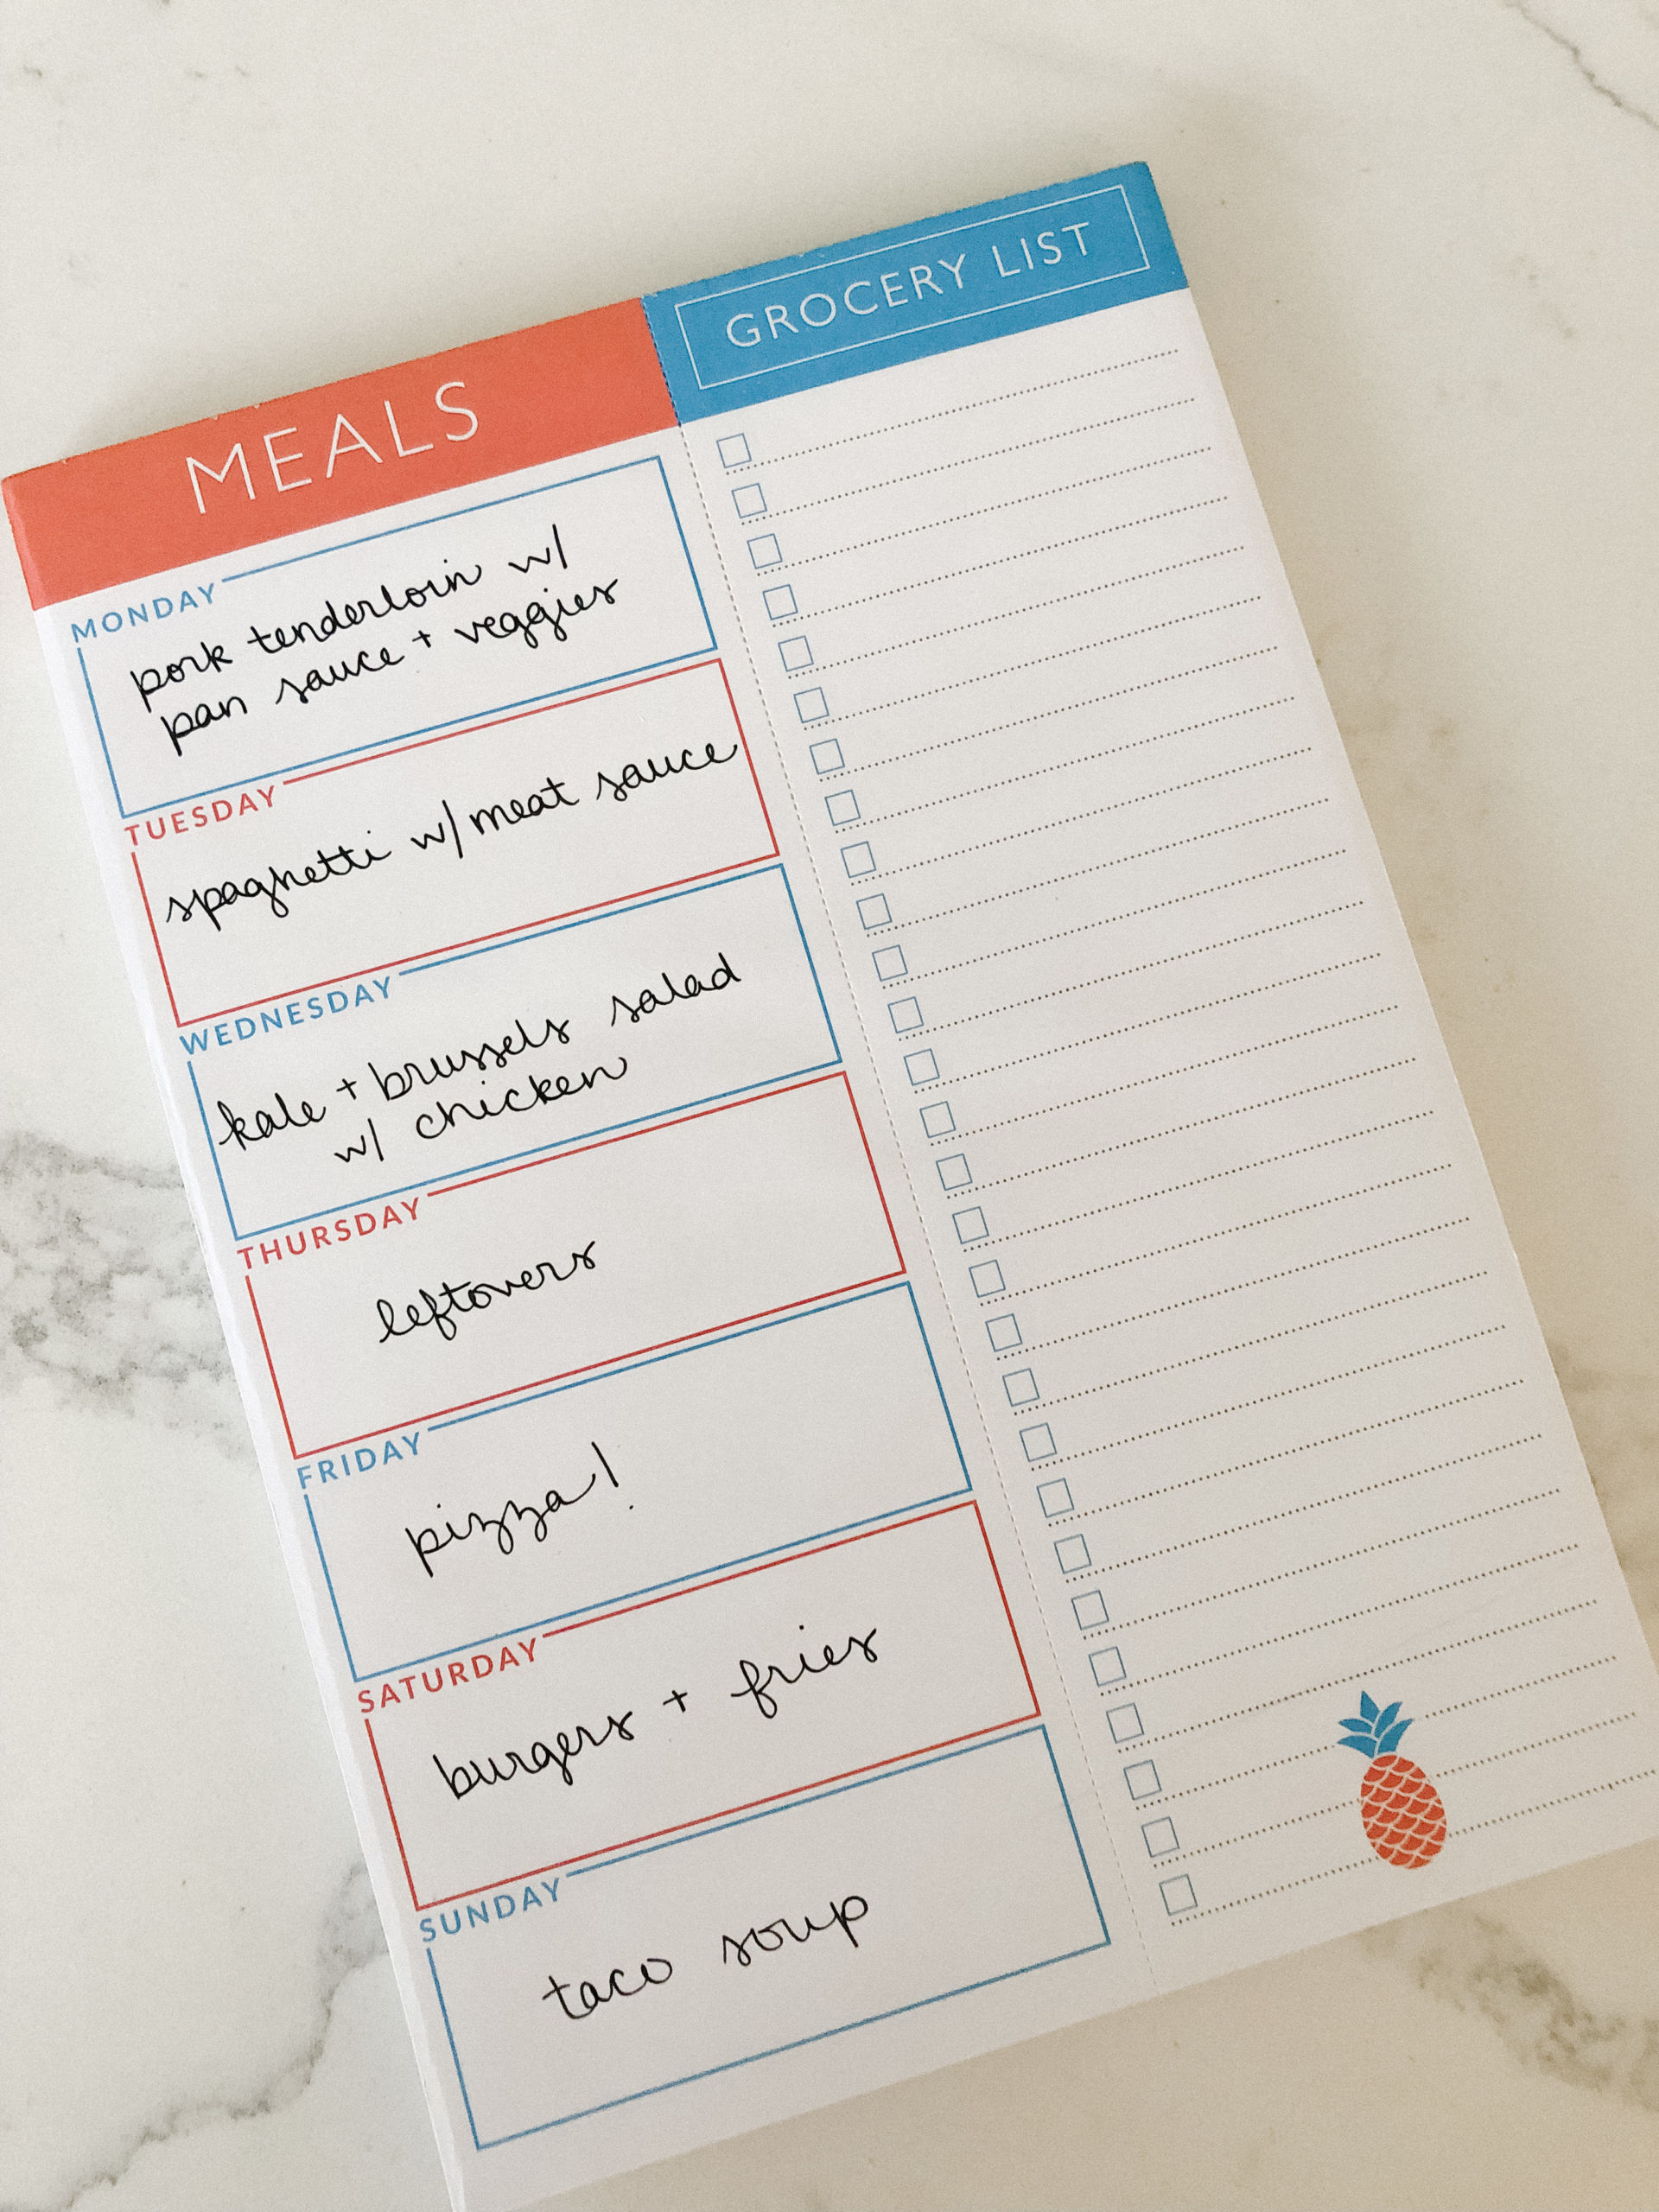 MEALS
MONDAY
pork tenderloin w/
pan sauce + veggies
TUESDAY
spaghetti w/ meat sauce
WEDNESDAY
kale + brussels salad
w/ chicken
THURSDAY
leftovers
FRIDAY
pizza!
SATURDAY
burgers + fries
SUNDAY
taco soup
GROCERY LIST